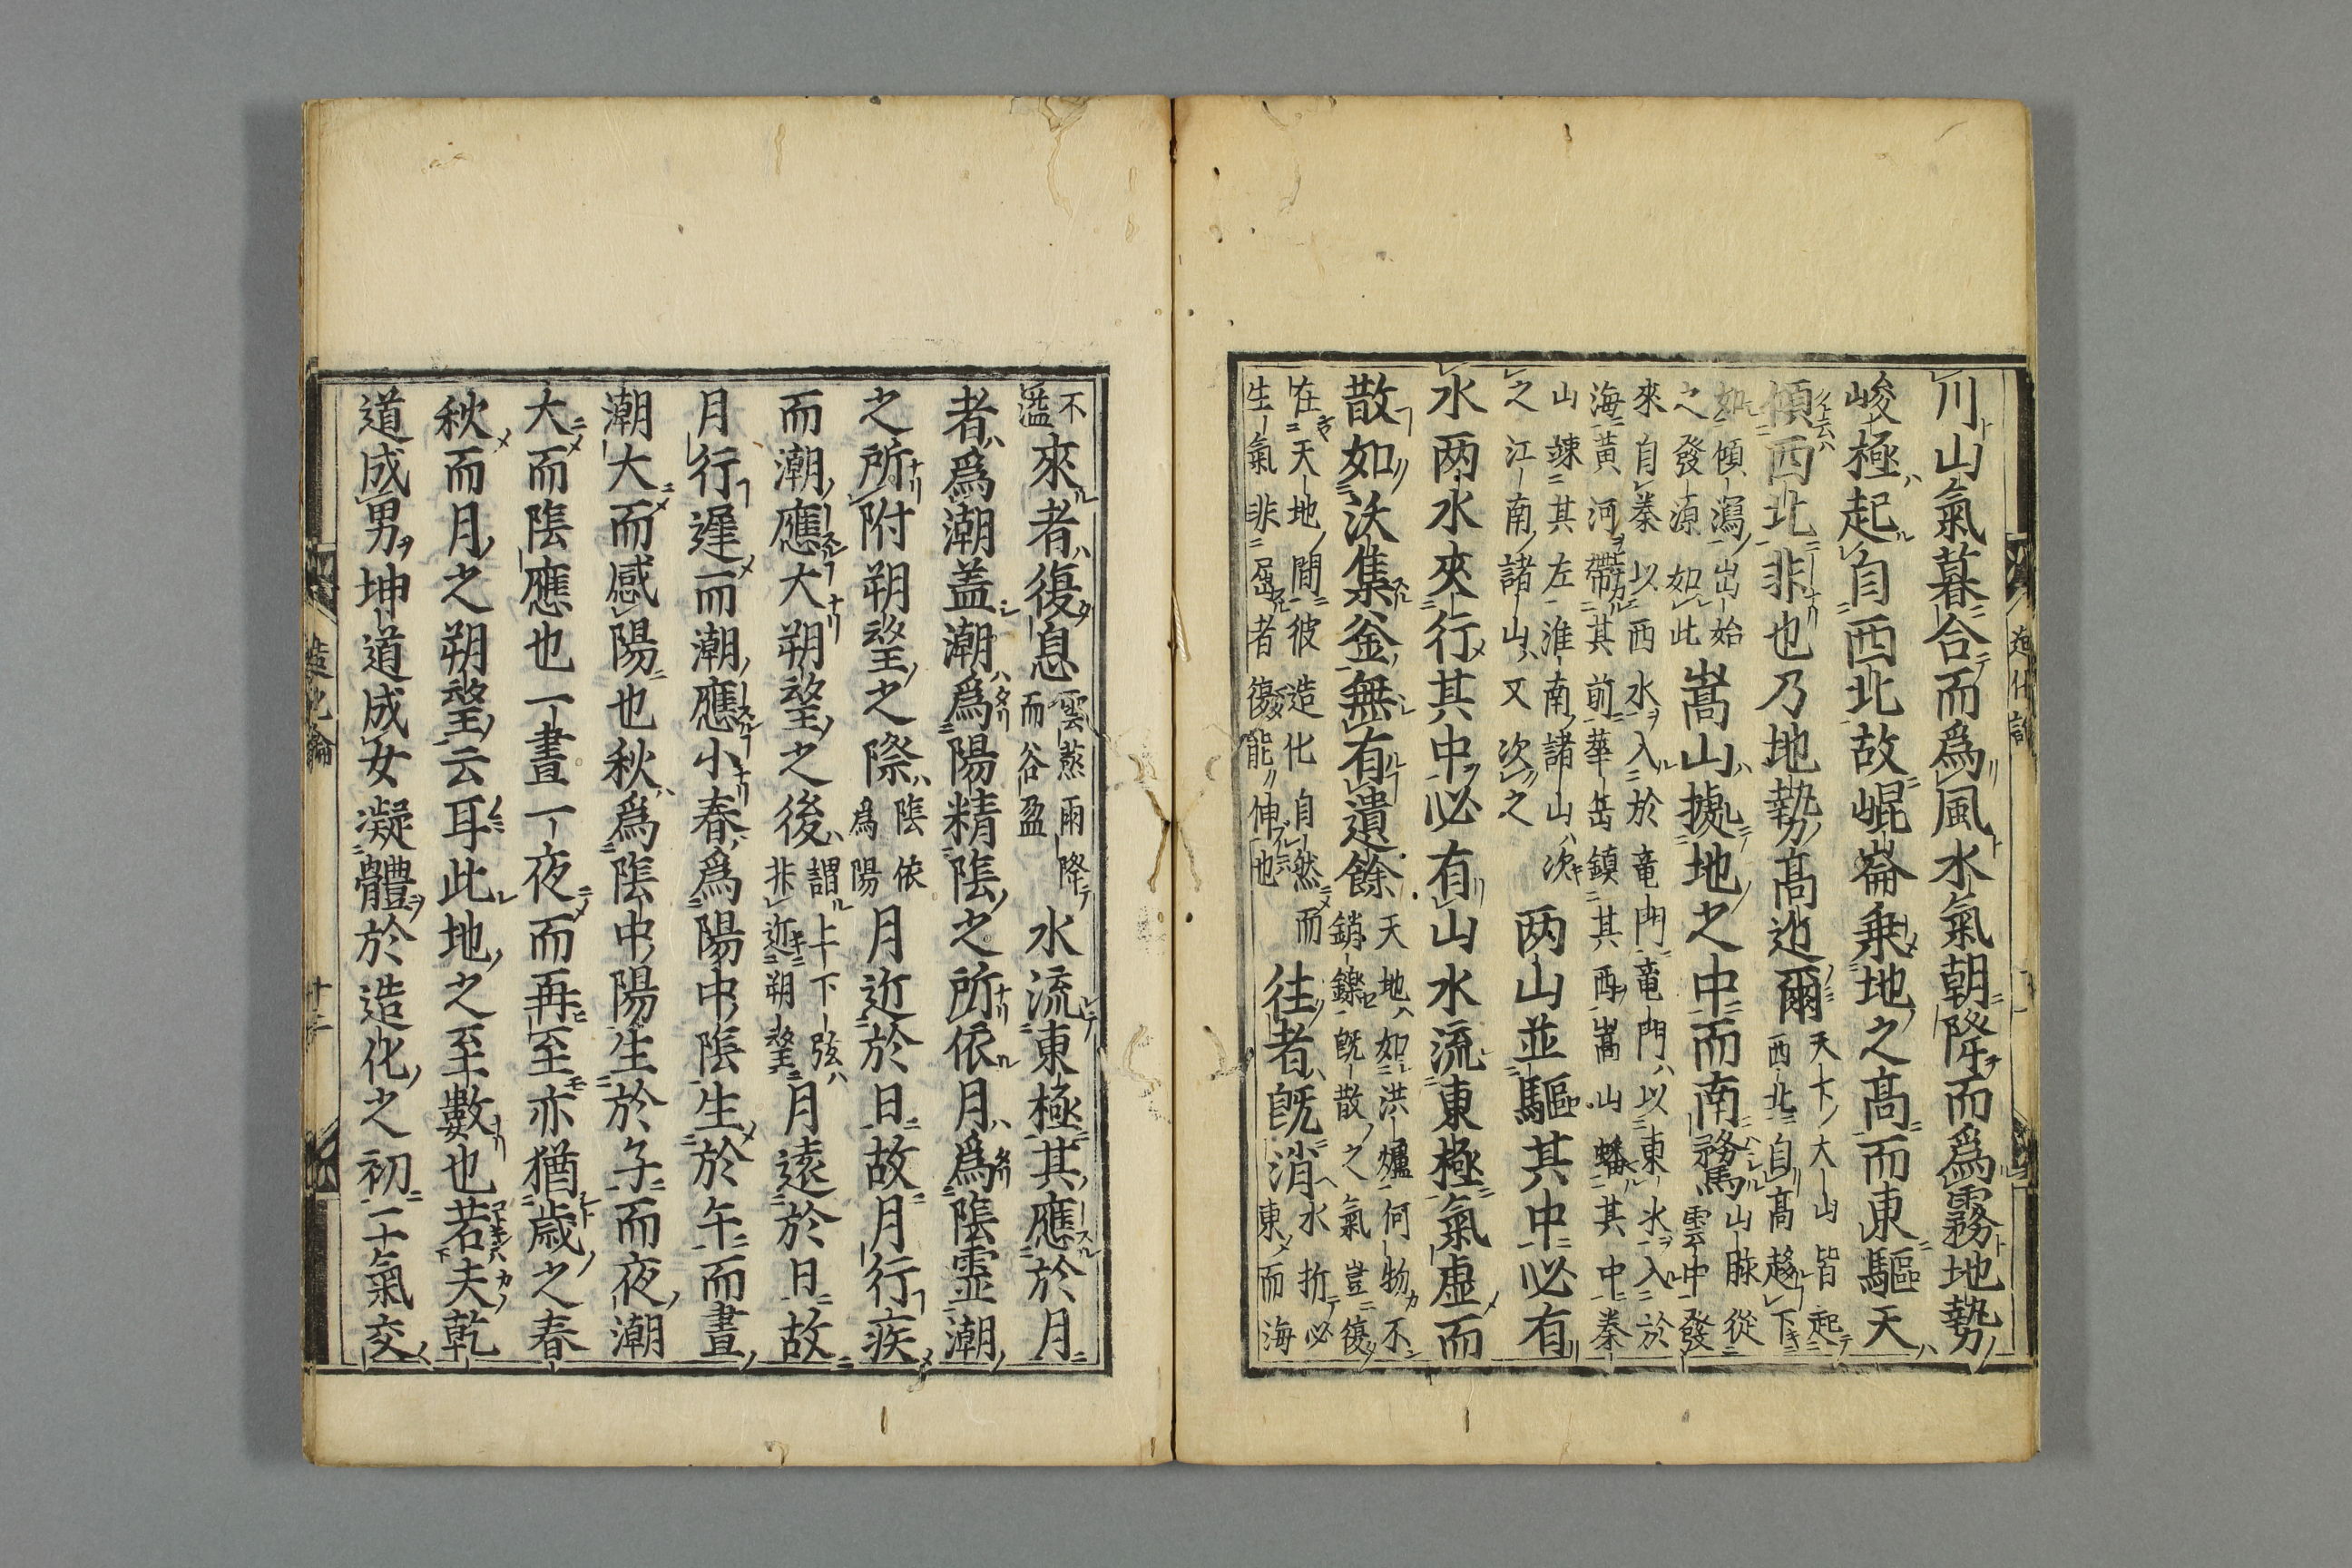 川山氣暮合而爲風水氣朝降而爲霧地勢
峻極起自西北故崐崙乗地之髙而東驅天
傾西北非也乃地勢髙逈爾
天下大山皆起
西北自髙趍下
如傾瀉出始
之發源如此
嵩山據地之中而南騖
山脉從
雲中發
來自秦以西水入於竜門竜門以東水入於
海黄河帶其前華岳鎮其西嵩山蟠其中秦
山竦其左淮南諸山次
之江南諸山又次之
两山並驅其中必有
水两水夾行其中必有山水流東極氣虚而
散如沃焦釜無有遺餘
天地如洪爐何物不
銷鑠旣散之氣豈復
在天地間彼造化自然而
生氣非屈者復能伸也
往者旣消
水折必
東而海
不
溢
來者復息
雲蒸雨降
而谷盈
水流東極其應於月
者爲潮盖潮爲陽精隂之所依月爲隂靈潮
之所附朔望之際
隂依
爲陽
月近於日故月行疾
而潮應大朔望之後
謂上下弦
非近朔望
月遠於日故
月行遲而潮應小春爲陽中隂生於午而晝
潮大而感陽也秋爲隂中陽生於子而夜潮
大而隂應也一晝一夜而再至亦猶歳之春
秋而月之朔望云耳此地之至數也若夫乾
道成男坤道成女凝體於造化之初二氣交
造化論
造化論
十三